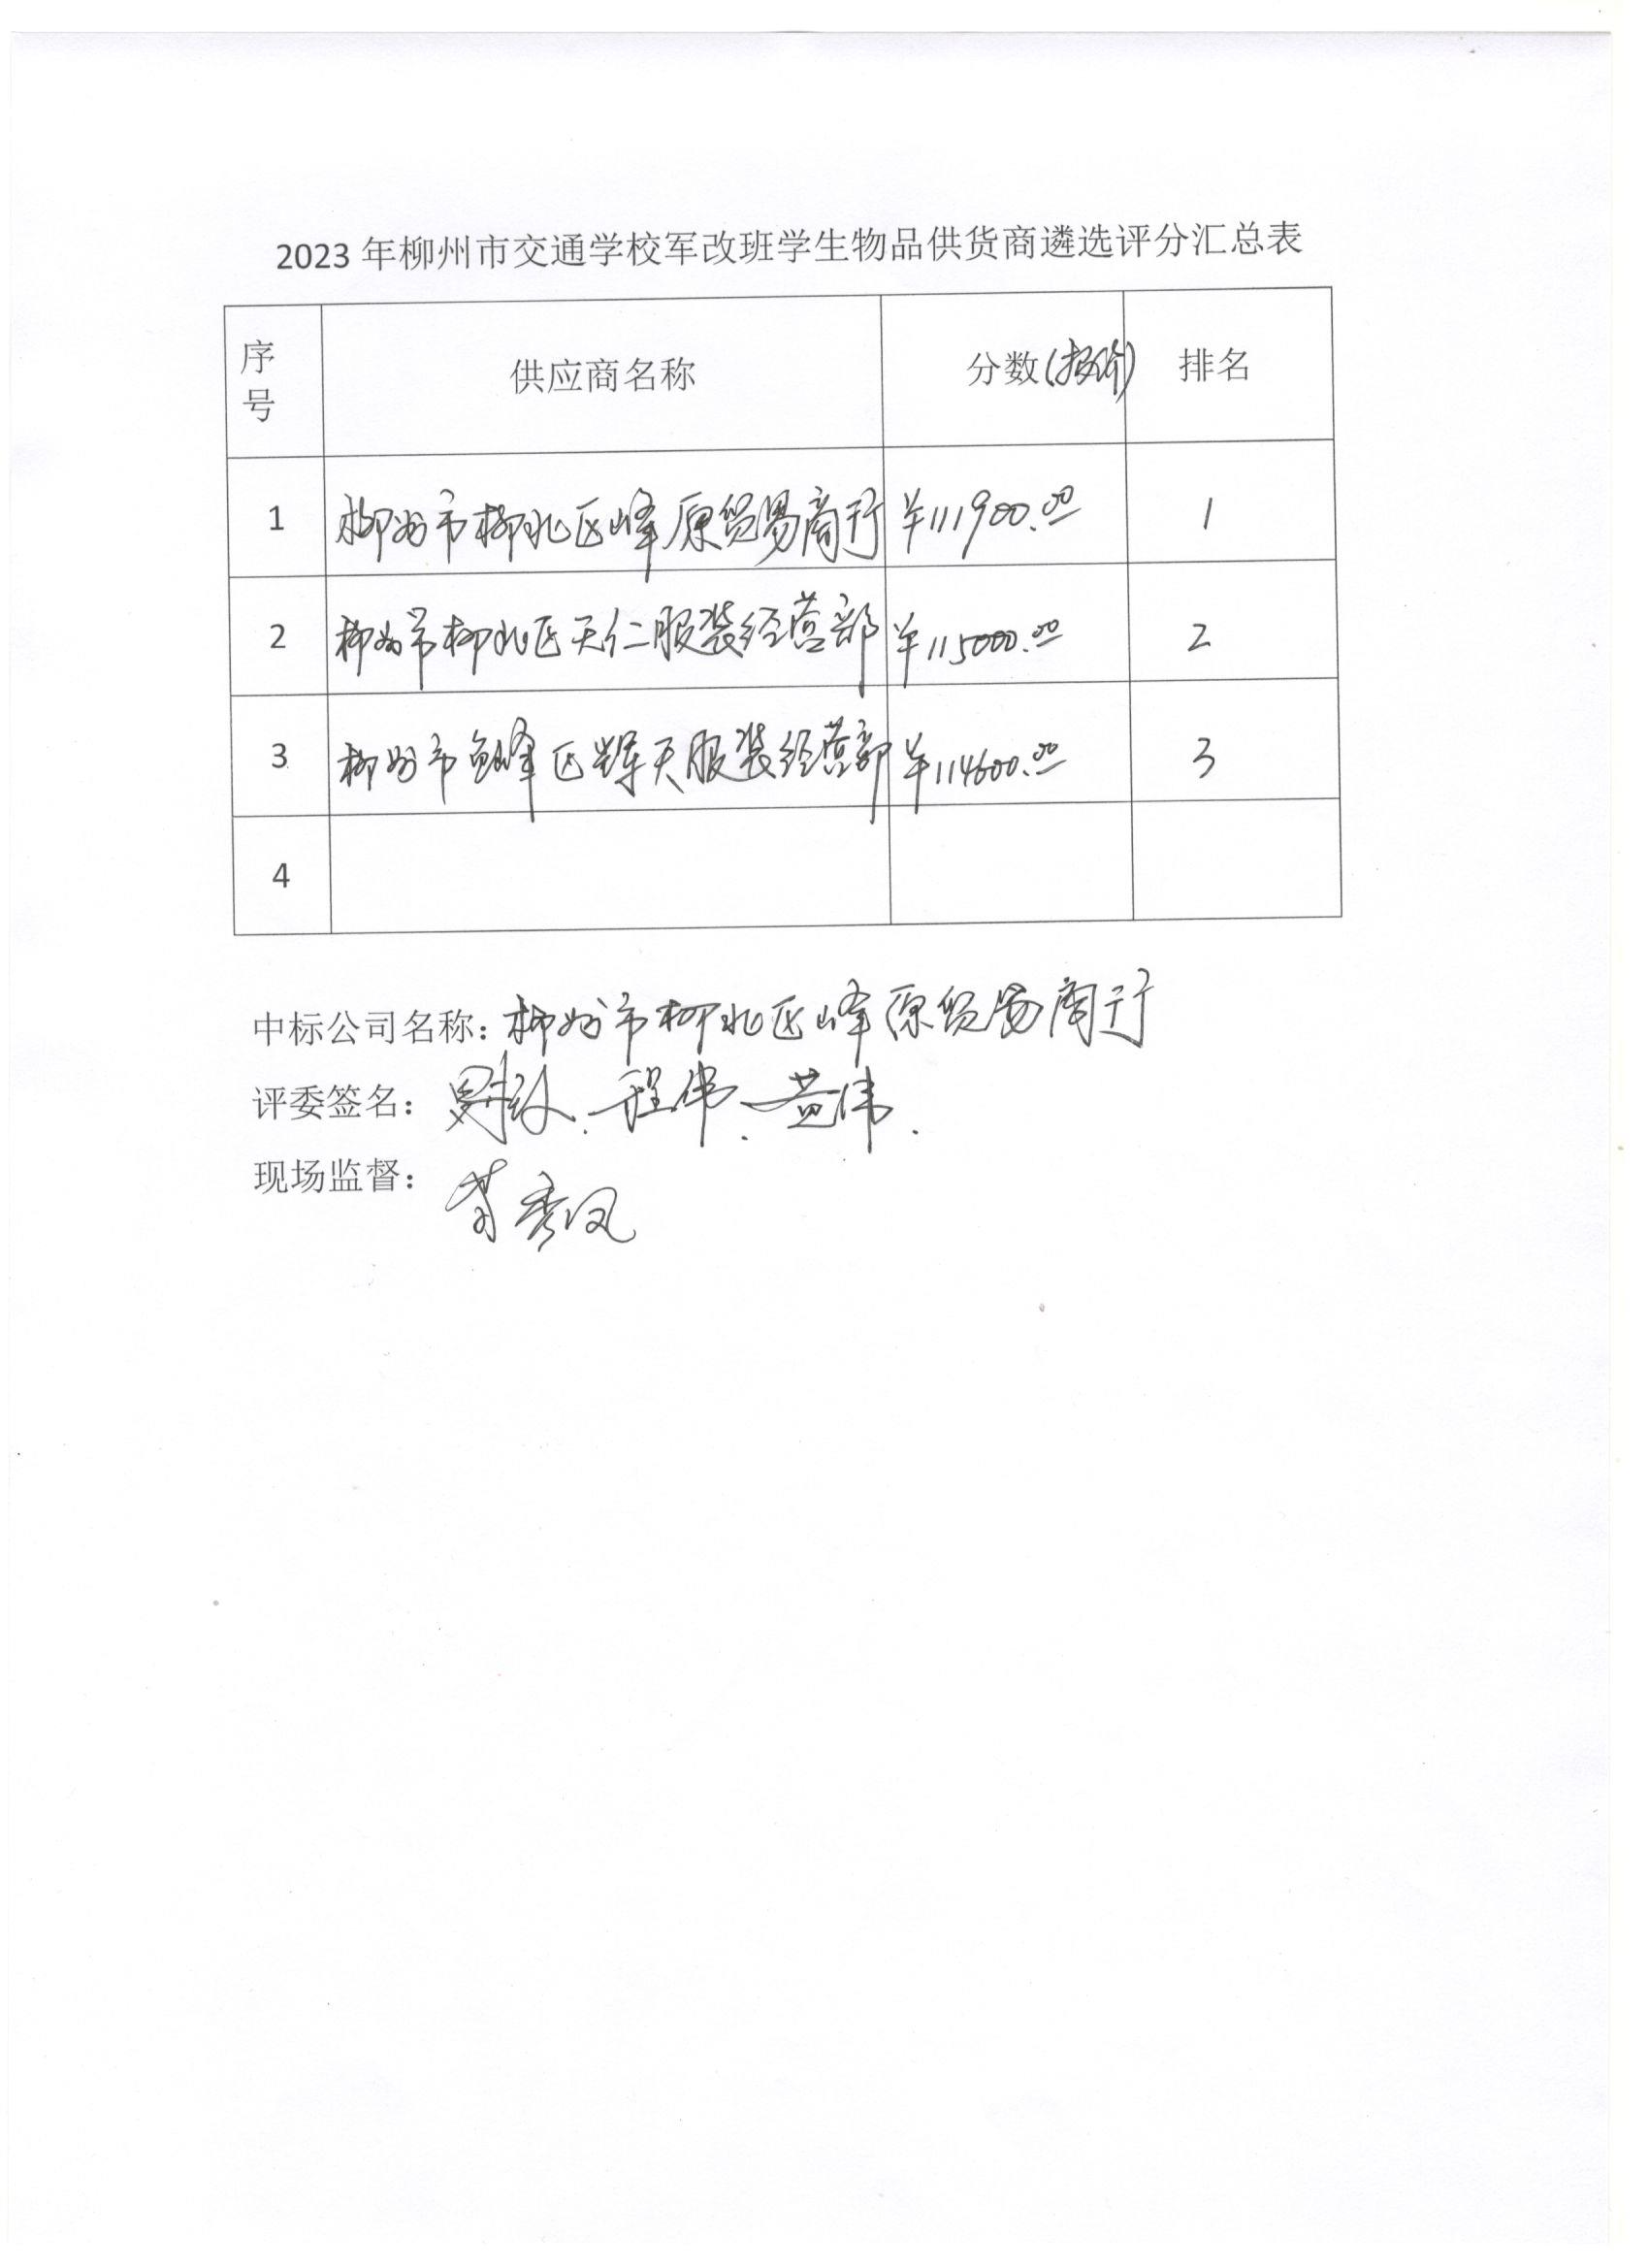 2023年柳州市交通学校军改班学生物品供货商遴选评分汇总表
序号 供应商名称 分数(报价) 排名
1 柳州市柳北区峰原贸易商行 ¥111900.00 1
2 柳州市柳北区天仁服装经营部 ¥115000.00 2
3 柳州市鱼峰区辉天服装经营部 ¥114600.00 3
4
中标公司名称：柳州市柳北区峰原贸易商行
评委签名： 程伟、黄伟.
现场监督： 秀凤